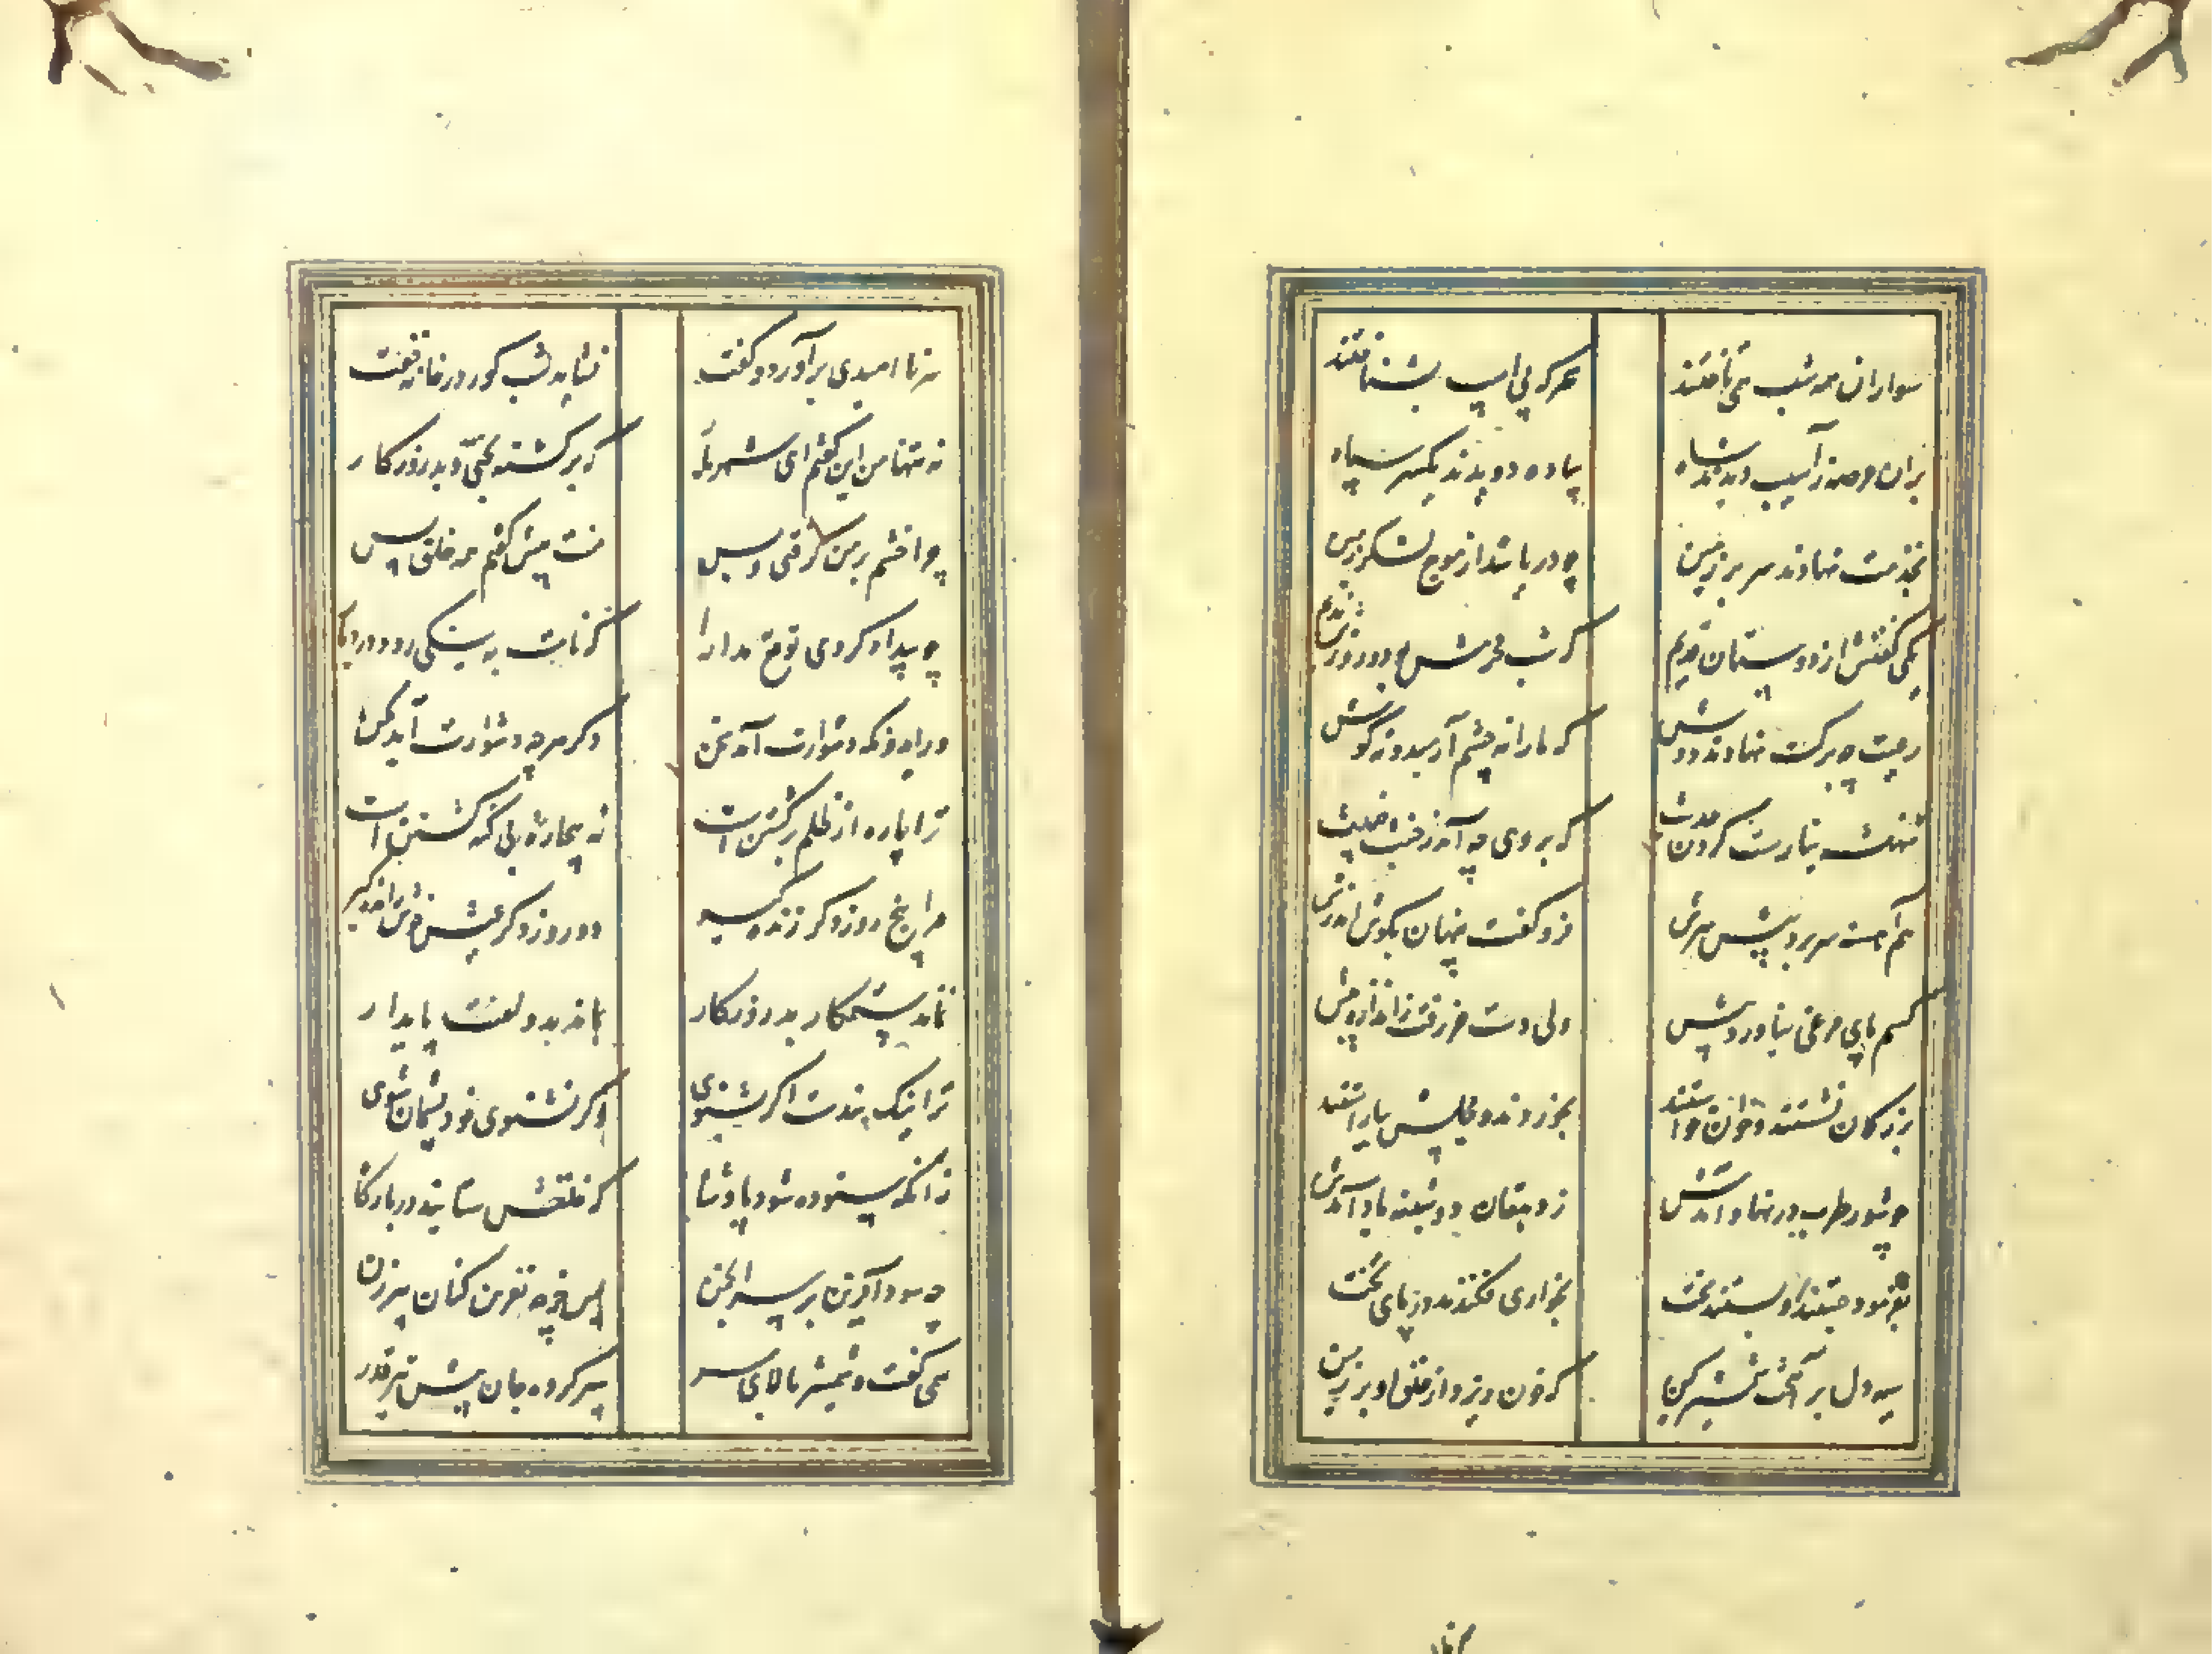 سواران همه شب همی تاختند سحرکه پی اسپ بشناختند
بران عرصه زاسیب دیدند شاه پیاده دویدند یکسر سپاه
بخدمت نهادند سر بر زمین چو دریا شد از موج لشکر زمین
یکی کفتش از دوستان قدیم که شب محرمش بود و روز ندیم
رعیت چه برکت نهادند دوش که مارا نه چشم آرمید و نه کوش
شهنشه نیارست کردن حدیث که بر وی چه آمد ز خبث خبیث
هم آهسته سر برد پیش سرش فرو کفت پنهان بکوش اندرش
کسم پای مرغی نیاورد پیش ولی دست خر رفت زاندازه بیش
بزرکان نشستند و خوان خواستند بخوردند و مجلس بیاراستند
چو شور طرب در نهاد آمدش ز دهقان دوشینه یاد آمدش
بفرمود جستند و بستند سخت بخواری فکندند در پای تخت
سیه دل بر آهخت شمشیر کین که خون ریزد از خلق او بر زمین
سرنا
سرنا امیدی برآورد و کفت نشاید شب کور در خانه خفت
نه تنها من این کفتم ای شهریار که برکشته بختی و بد روزکار
چرا خشم بر من کرفتی و بس منت پیش کفتم همه خلق پس
چو بیداد کردی توقع مدار که نامت به نیکی رود در دیار
ور ایدونکه دشوارت آمد سخن دکر هرچه دشوارت آید مکن
ترا چاره از ظلم برکشتن است نه بیچاره بی کنه کشتن است
مرا پنج روز دکر زنده کیر دو روز دکر عیش خوش رانده کیر
نماند ستمکار بد روزکار بماند بدو لعنت پایدار
ترا نیک پندست اکر بشنوی وکر نشنوی خود پشیمان شوی
زانکه ستوده شود پادشا که خلقش ستایند در بارکاه
چه سود آفرین بر سر انجمن پس چرخه نفرین کنان پیرزن
همی کفت و شمشیر بالای سر سپر کرده جان پیش تیر قدر